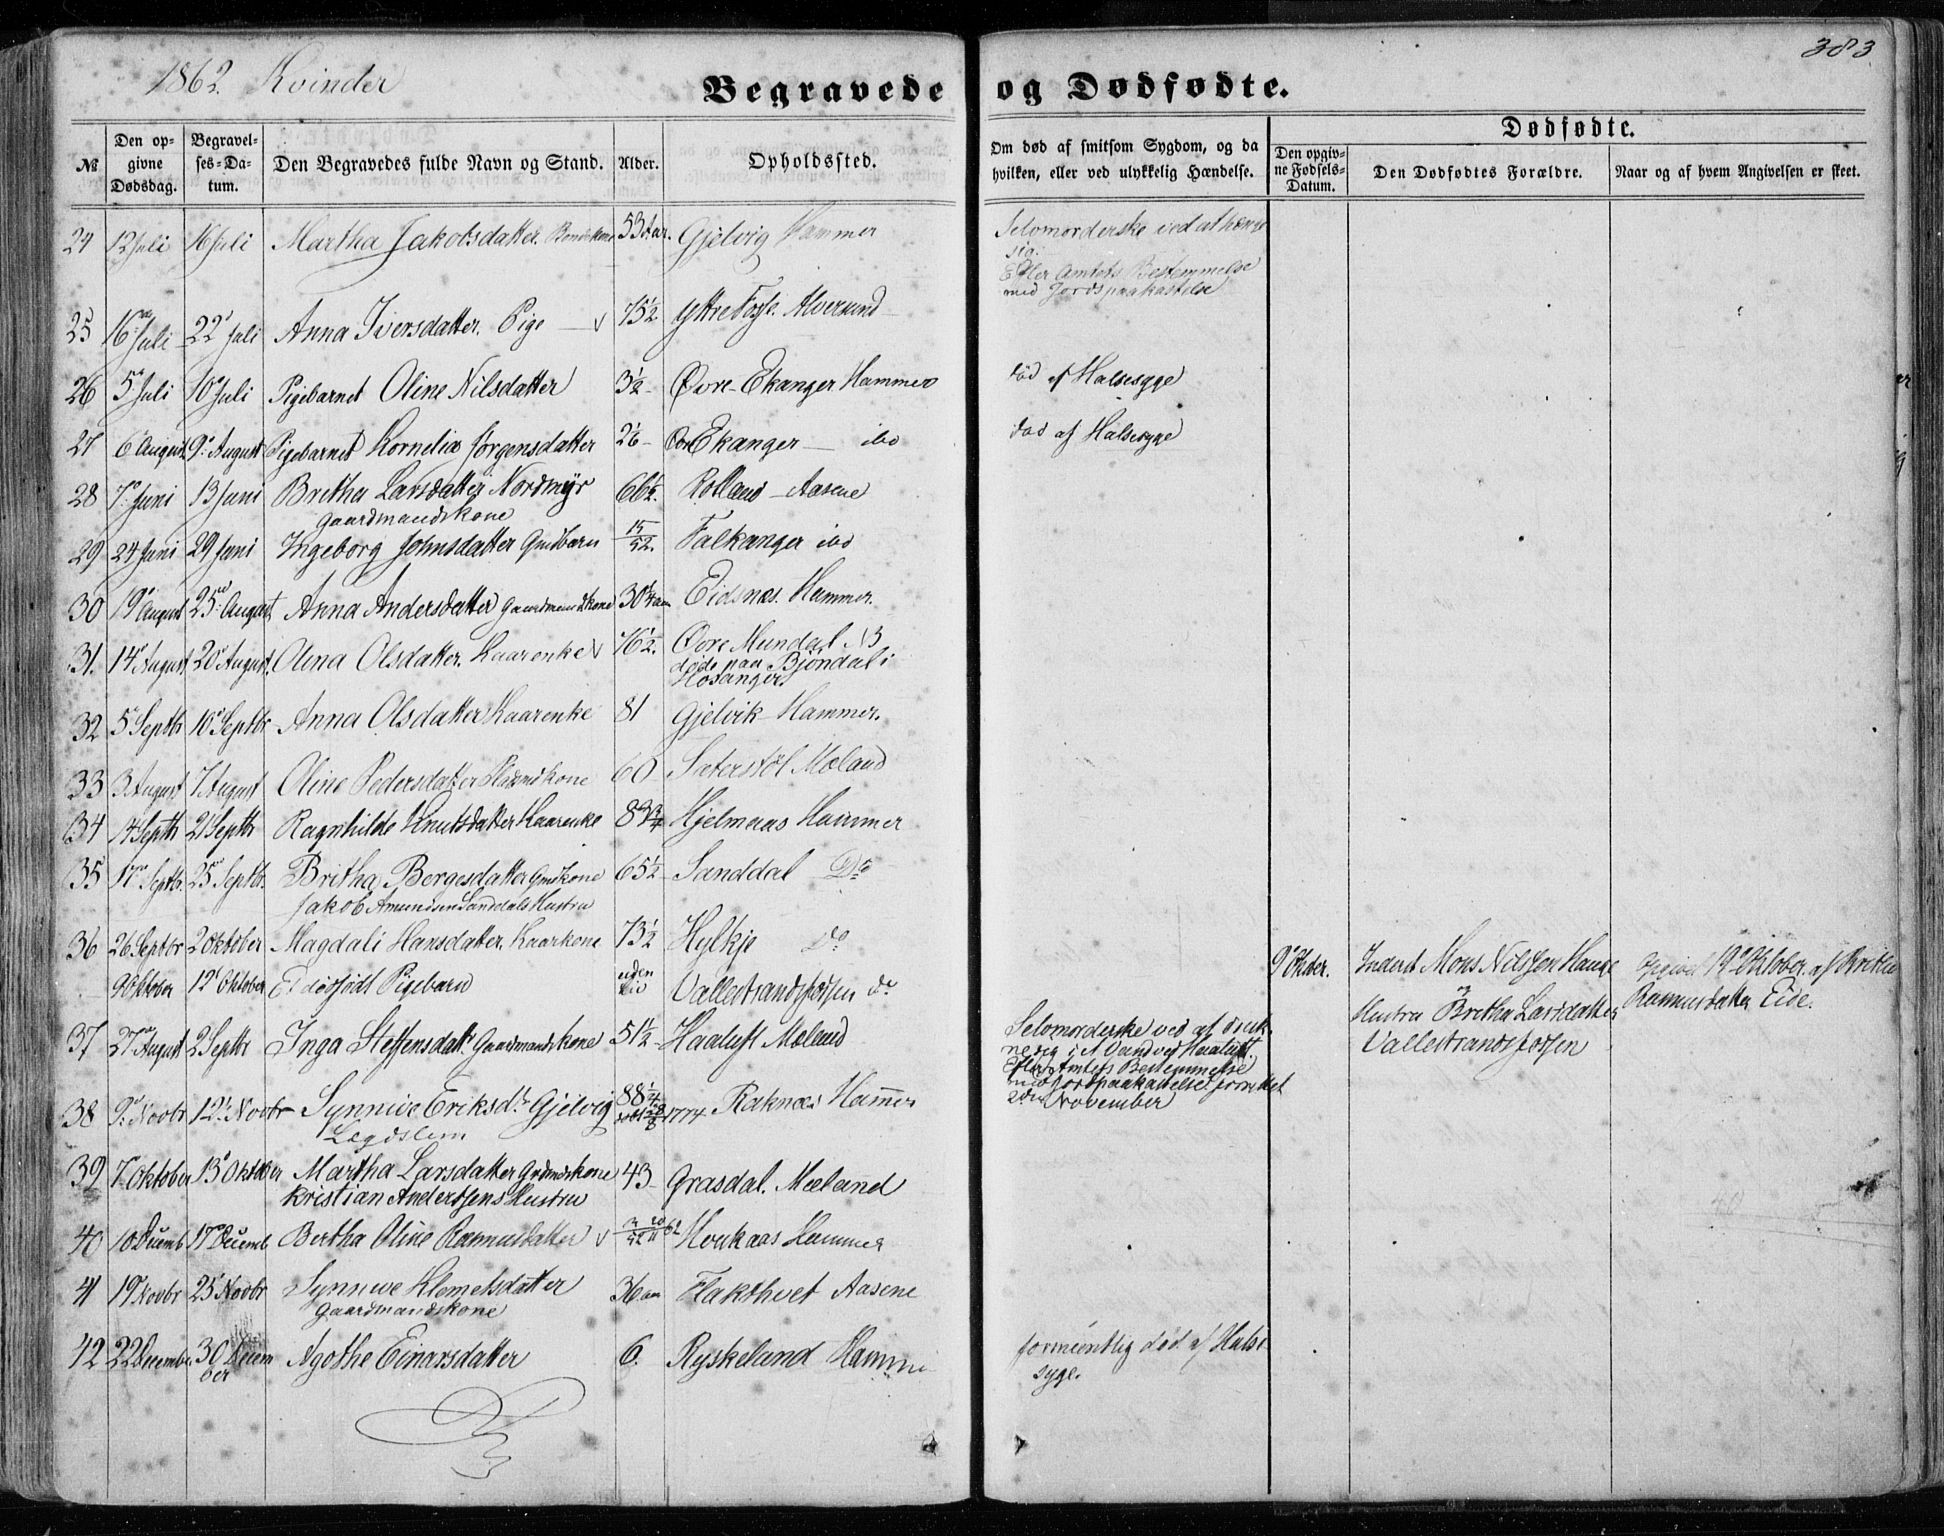 383
1862. Kvinder
Begravede og Dødfødte.
№
Den opgivne Dødsdag.
Begravelses-Datum.
Den Begravedes fulde Navn og Stand.
Alder.
Opholdssted.
Om død af smitsom Sygdom, og da hvilken, eller ved ulykkelig Hændelse.
Dødfødte.
Den opgivne Fødsels-Datum.
Den Dødfødtes Forældre.
Naar og af hvem Angivelsen er skeet.
24 12 Juli 16 Juli Martha Jakobsdatter. Bondekone 53 Aar. Gjelvig Hammer Selvmorderske ved at hænge
sig.
Efter Amtets Bestemmelse
med Jordspaakastelse
25 16 Juli 22 Juli Anna Iversdatter. Pige 75½ Ytre Fosse. Alversund
26 5 Juli 10 Juli Pigebarnet Oline Nilsdatter 3½ Øvre-Ekanger Hammer død af Halsesyge
27 6 August 9 August Pigebarnet Kornelia Jørgensdatter Ekanger ibd død af Halsesyge
28 7 Juni 13 Juni Britha Larsdatter Nordmyr 66½. Rolland Aasene
Gaardmandskone
29 24 Juni 29 Juni Ingeborg Johnsdatter Gmdbarn 15/52. Falkanger ibd
30 19 August 25 August Anna Andersdatter Gaardmandskone 30¼ Eidsnæs. Hammer.
31. 14 August 20 August. Olina Olsdatter. Kaarenke 76½. Øvre Mundal
døde paa Bjøndal i
Hosanger
32 5 Septbr 10 Septbr Anna Olsdatter Kaarenke 81 Gjelvik Hammer.
33 3 August 7 August Oline Pedersdatter 60 Sæterstøl Mæland
34 14 Septbr 21 Septbr Ragnhilde Knutsdatter Kaarenke 83¾ Hjelmaas Hammer
35 17 Septbr. 25 Septbr. Britha Bergesdatter Gmdkone 65½ Sanddal Do
Jakob Amundsen Sanddals Hustru
36 26 Septbr 2 Oktober Magdali Hansdatter. Kaarkone 73½ Hylkje Do
9 Oktober 12 Oktober Et dødfødt Pigebarn uden Liv Vallestrandsfossen do 9 Oktober. Inderst Mons Nilssen Hauge Opgivet 19 Oktober af Britha
Hustru Britha Larsdatter Rasmusdatter Eide.
Vallestrandsfossen
37 27 August 2 Septbr Inga Steffensdatt. Gaardmandskone 51½ Haatuft Mæland Selvmorderske ved at druk-
ne sig i Vand ved Haatuft.
Efter Amtets Bestemmelse
med Jordpaakastelse forrettet
2den November
38 9 Novbr 12 Novbr Synnive Eriksdtr Gjelvig 88¼ 1774 Raknæs Hammer
Lægdslem
39 7 Oktober 13 Oktober Martha Larsdatter Grdmdskone 43 Grasdal. Mæland
Kristian Anderssens Hustru
40 10 Decemb 17 Decemb Bertha Oline Rasmusdatter Hammer
41 19 Novbr 25 Novbr Synnive Klemetsdatter 36 Flakthvet Aasene
Gaardmandskone
42 22 December 30 December Agothe Einarsdatter 6. Ryskeland Hammer formentlig død af Hals-
syge.